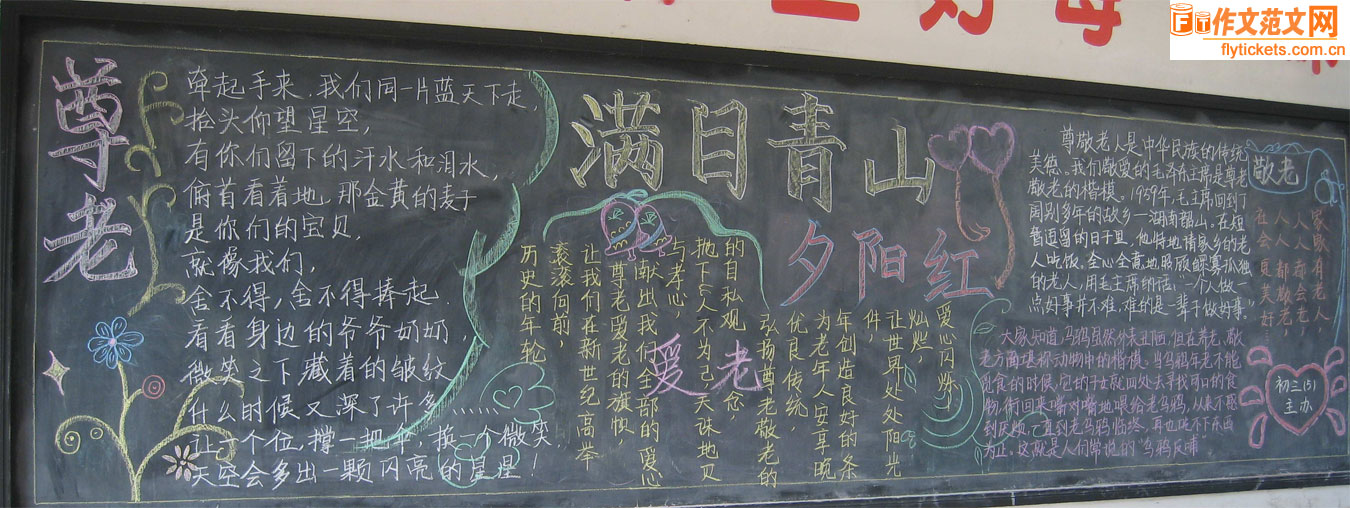 作文范文网
flytickets.com.cn
好
尊老
牵起手来，我们同一片蓝天下走，
抬头仰望星空，
有你们留下的汗水和泪水，
俯首看着地，那金黄的麦子
是你们的宝贝，
就像我们，
舍不得，舍不得捧起．
看看身边的爷爷奶奶，
微笑之下藏着的皱纹
什么时候又深了许多……
让一个位，撑一把伞，换一个微笑
天空会多出一颗闪亮的星星！
满目青山
夕阳红
历史的车轮
滚滚向前，
让我们在新世纪高举
尊老爱老的旗帜，
献出我们全部的爱心
与孝心，
抛下“人不为己天诛地
的自私观念
爱老
弘扬尊老敬老的
优良传统，
为老年人安享晚
年创造良好的条
件，
让世界处处阳光
灿烂，
爱心闪烁。
尊敬老人是中华民族的传统
美德、我们敬爱的毛泽东主席是尊老
敬老的楷模。1959年，毛主席回到了
阔别多年的故乡—湖南韶山。在短
暂逗留的日子里，他特地请家乡的老
人吃饭。全心全意地照顾鳏寡孤独
的老人，用毛主席的话：“一个人做一
点好事并不难，难的是一辈子做好事。”
大家知道，乌鸦虽然外表丑陋，但在养老、敬
老方面堪称动物中的楷模。当乌鸦年老不能
觅食的时候，它的子女就四处去寻找可口的食
物，衔回来嘴对嘴地喂给老乌鸦，从来不感
到厌烦，一直到老乌鸦临终，再也吃不下东西
为止。这就是人们常说的“乌鸦反哺”
敬老
家家有老人，
人人都会老，
人人都敬老，
社会更美好
初三(5)
主办